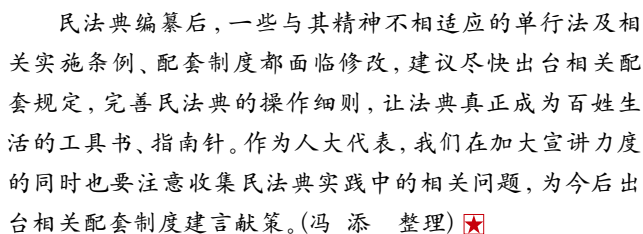 民法典编纂后，一些与其精神不相适应的单行法及相
关实施条例、配套制度都面临修改，建议尽快出台相关配
套规定，完善民法典的操作细则，让法典真正成为百姓生
活的工具书、指南针。作为人大代表，我们在加大宣讲力度
的同时也要注意收集民法典实践中的相关问题，为今后出
台相关配套制度建言献策。(冯 添 整理)